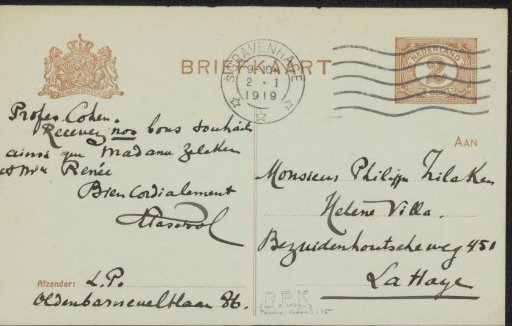 BRIEFKAART
'S-GRAVENHAGE
2 - I
1919
NEDERLAND
2
Profes. Cohen.
Recevez nos bons souhaits
ainsi que Madame Zilcken
et Mlle Renée
Bien Cordialement
AAN
Monsieur Philippe Zilcken
Helene Villa.
Bezuidenhoutscheweg 451
La Haye
Afzender: L.P.
Oldenbarneveltlaan 86.
R.P.K